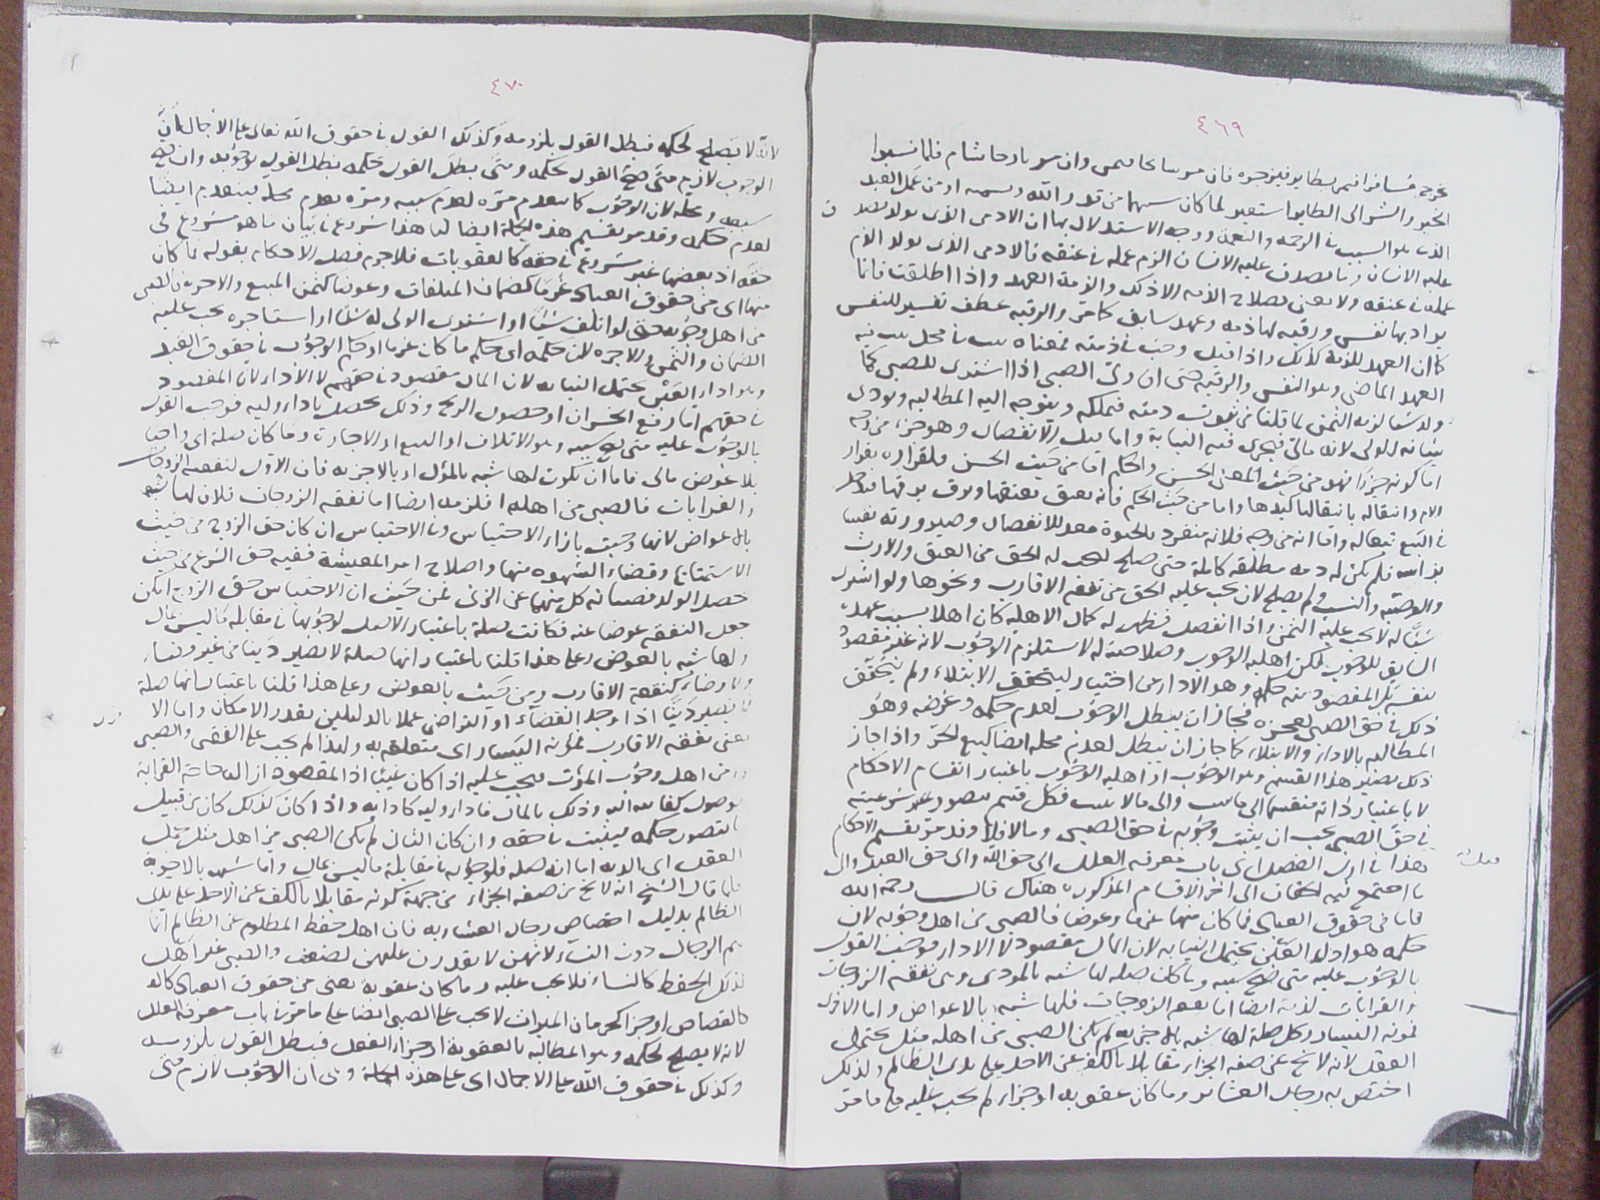 ٤٦٩
خرج مسافرا فمر بطاير فيزجره فان مر سانحا تيمن وان مر بارحا تشام فلما نسبوا
الخير والشر الى الطاير استعير لما كان سببهما من قدر الله وقسمه او من عمل العبد
الذى هو السبب فى الرحمة والنعمة ووجه الاستدلال بها ان الادمى الذى يولد
عليه الانسان الزم عمله فى عنقه فالادمى الذى يولد الزم
عمله فى عنقه ولا يعنى بصلاح الذمة الا ذلك والذمة العهد واذا اطلقت فانما
يراد بها نفس ورقبة لها ذمة وعهد سابق كما مر والرقبة عطف تفسير للنفس
كما ان العهد للذمة كذلك واذا قيل وجب فى ذمته فمعناه يثبت فى محل يثبت فيه
العهد الماضى وهو النفس والرقبة حتى ان ولى الصبى اذا اشترى للصبى كما
ولد شيئا لزمه الثمن لما قلنا من ثبوت ذمته فيملكه ويتوجه اليه المطالبة ويودى
نيابة الولى لانه مالى فيجرى فيه النيابة واما قبل الانفصال وهو جزء من وجه
اما كونه جزءا فهو من حيث المعنى الحسى والحكم اما من حيث الحس فلقراره بقرار
الام وانتقاله بانتقالها كيدها واما من حيث الحكم فانه يعتق بعتقها ويرق برقها ويدخل
فى البيع تبعا له واما انه من وجه فلانه منفرد بالحيوة معد للانفصال وصيرورته نفسا
براسه فلم يكن له ذمة مطلقة كاملة حتى صلح ليجب له الحق من العتق والارث
والوصية والنسب ولم يصلح لان يجب عليه الحق من نفقة الاقارب ونحوها ولو اشترى
شيئا له لا يجب عليه الثمن واذا انفصل فظهر له كمال الاهلية كان اهلا بسبب عهده
السابق للوجوب لكن اهلية الوجوب وصلاحيته له لا يستلزم الوجوب لانه غير مقصود
بنفسه بل المقصود منه حكمه وهو الاداء عن اختيار ليتحقق الابتلاء ولم يتحقق
ذلك فى حق الصبى لعجزه فجاز ان يبطل الوجوب لعدم حكمه وغرضه وهو
المطالبة بالاداء والابتلاء كما جاز ان يبطل لعدم محله ايضا كبيع الحر واذا جاز
ذلك يصير هذا القسم وهو الوجوب او اهلية الوجوب باعتبار انقسام الاحكام
لا باعتبار ذاته منقسما الى ما يثبت والى ما لا يثبت فكل قسم يتصور شرعيته
فى حق الصبى يجب ان يثبت وجوبه فى حق الصبى وما لا فلا وقد مر تقسيم الاحكام
هذا فى اول الفصل اى باب معرفة العلل الى حق الله والى حق العبد والى
ما اجتمع فيه الحقان الى اخر الاقسام المذكورة هناك قال رحمه الله
فاما فى حقوق العباد فما كان منها غرما وعوضا فالصبى من اهل وجوبه لان
حكمه هو اداء العين يحتمل النيابة لان المال مقصود لا الاداء فوجب القول
بالوجوب عليه متى صح سببه وما كان صلة لها شبه بالمؤن وهى نفقة الزوجات
والقرابات لزمه ايضا اما نفقة الزوجات فلها شبه بالاعواض واما الاخرى
فمونة اليسار وكل صلة لها شبه بالاجزية لم يكن الصبى من اهله مثل تحمل
العقل لانه لا يخ عن صفة الجزاء مقابلا بالكف عن الاخذ على يد الظالم ولذلك
اختص به رجال العشائر وما كان عقوبة او جزاء لم يجب عليه على ما مر
٤٧٠
لانه لا يصلح لحكمه فبطل القول بلزومه وكذلك القول فى حقوق الله تعالى على الاجمال ان
الوجوب لازم متى صح القول بحكمه ومتى بطل القول بحكمه بطل القول بوجوبه وان صح
سببه ومحله لان الوجوب كما ينعدم مرة لعدم سببه ومرة بعدم محله ينعدم ايضا
لعدم حكمه وقد مر تقسيم هذه الجملة ايضا لما هذا شروع فى بيان ما هو مشروع فى
حقه اذ بعضها غير مشروع فى حقه كالعقوبات فلا جرم فصل الاحكام بقوله فما كان
منها اى من حقوق العباد غرما كضمان المتلفات وعوضا كثمن المبيع والاجرة فالصبى
من اهل وجوبه حتى لو اتلف شيئا او اشترى الولى له شيئا او استاجره يجب عليه
الضمان والثمن والاجرة لان حكمه اى حكم ما كان غرما او حكم الوجوب فى حقوق العبد
وهو اداء العين يحتمل النيابة لان المال مقصود فى حقهم لا الاداء لان المقصود
فى حقهم اما رفع الخسران او حصول الربح وذلك يحصل باداء وليه فوجب القول
بالوجوب عليه متى صح سببه وهو الاتلاف او البيع او الاجارة وما كان صلة اى واجبا
بلا عوض مالى فاما ان يكون لها شبه بالمؤن او بالاجزية فان الاول كنفقة الزوجات
والقرابات فالصبى من اهلها فلزمه ايضا اما نفقة الزوجات فلان لها شبه
بالاعواض لانها وجبت بازاء الاحتباس وهذا الاحتباس ان كان حق الزوج من حيث
الاستمتاع وقضاء الشهوة منها واصلاح امر المعيشة ففيه حق الشرع من حيث
حصول الولد وصيانة كل منهما عن الزنى فمن حيث ان الاحتباس حق الزوج امكن
جعل النفقة عوضا عنه فكانت صلة باعتبار الاصل لوجوبها فى مقابلة ما ليس بمال
ولها شبه بالعوض وعلى هذا قلنا باعتبار انها صلة لا يصير دينا من غير قضاء
ولا رضاء كنفقة الاقارب ومن حيث بالعوض وعلى هذا قلنا باعتبار انها صلة
لا يصير دينا اذا وجد القضاء او التراضى عملا بالدليلين بقدر الامكان واما الا
يعنى نفقة الاقارب فمؤنة اليسار اى متعلقة به ولهذا لم يجب على الفقير والصبى
من اهل وجوب المؤنة فيجب عليه اذا كان غنيا اذ المقصود ازالة حاجة القرابة
بوصول كفايته اليه وذلك بالمال فاداء وليه كادائه واذا كان كذلك كان من قبيل
ما يتصور حكمه فيثبت فى حقه وان كان الثانى لم يكن الصبى من اهله مثل تحمل
العقل اى الدية اما انه صلة فلوجوبه فى مقابلة ما ليس بمال واما شبهه بالاجزية
فلما قال الشيخ انه لا يخ عن صفة الجزاء من جهة كونه مقابلا بالكف عن الاخذ على يدى
الظالم بدليل اختصاص رجال العشاير به فان اهل حفظ المظلوم عن الظالم انما
هم الرجال دون النساء لانهن لا يقدرن عليه لضعفهن والصبى غير اهل
لذلك الحفظ كالنساء فلا يجب عليه وما كان عقوبة يعنى من حقوق العباد كالد
كالقصاص او جزاء كحرمان الميراث لا يجب على الصبى ايضا على ما مر فى باب معرفة العلل
لانه لا يصلح لحكمه وهو المطالبة بالعقوبة او جزاء الفعل فبطل القول بلزومه
وكذلك فى حقوق الله على الاجمال اى على هذه الجملة وهى ان الوجوب لازم متى